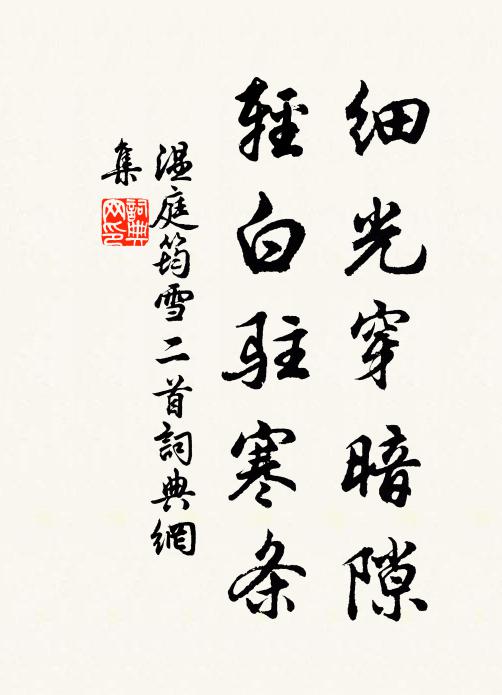 细光穿暗隙
輕白驻寒条
温庭筠雪二首詞典網
集
詞典
网印